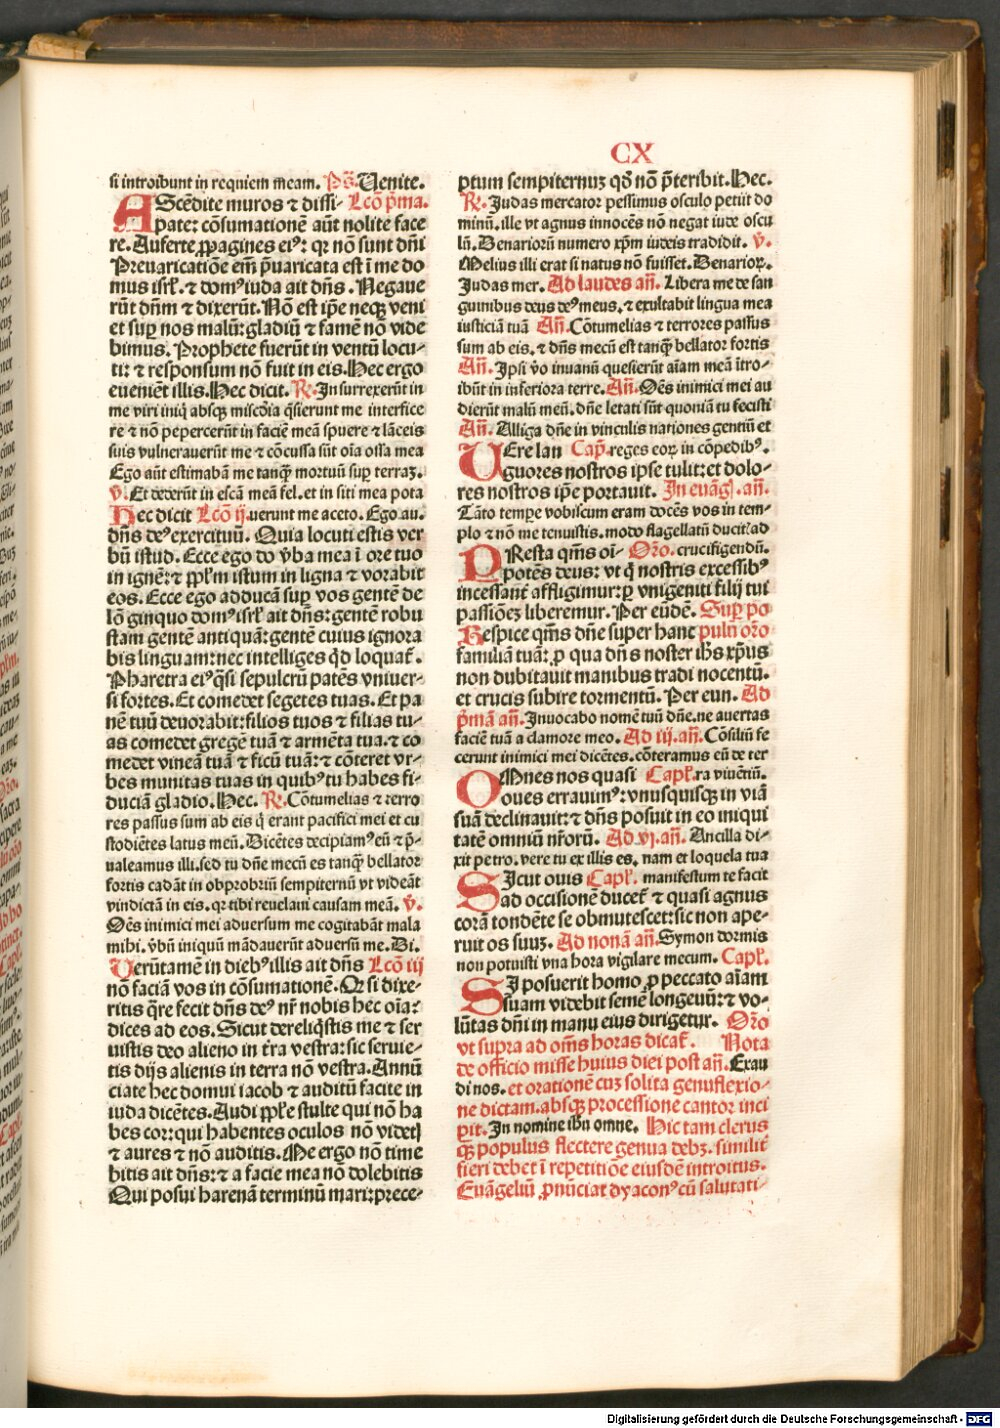 CX
si introibunt in requiem meam. Ps̄. Venite.
AScēdite muros ⁊ dissi- Lcō p̄ma.
pate: cōsumationē aūt nolite face
re. Auferte ꝓpagines ei⁹: qꝛ nō sunt dn̄i
Preuaricatiōe em̄ p̄uaricata est ī me do
mus isrl̄. ⁊ dom⁹ iuda ait dn̄s. Negaue
rūt dn̄m ⁊ dixerūt. Nō est ip̄e neqꝫ veni
et suꝑ nos malū: gladiū ⁊ famē nō vide
bimus. Prophete fuerūt in ventū locu-
ti: ⁊ responsum nō fuit in eis. Hec ergo
eueniēt illis. Hec dicit. R̄. Insurrexerūt in
me viri iniq̄ absqꝫ mīscdīa q̄sierunt me interfice
re ⁊ nō pepercerūt in faciē meā spuere ⁊ lāceis
suis vulnerauerūt me ⁊ cōcussa sūt oīa ossa mea
Ego aūt estimabā me tanqꝫ mortuū suꝑ terraꝫ.
v̄. Et dederūt in escā meā fel. et in siti mea pota
Hec dicit Lcō ij. uerunt me aceto. Ego au.
dn̄s de⁹ exercituū. Quia locuti estis ver
bū istud. Ecce ego do v̄ba mea ī ore tuo
in ignē: ⁊ pp̄lm istum in ligna ⁊ vorabit
eos. Ecce ego adducā suꝑ vos gentē de
lōginquo dom⁹ isrl̄ ait dn̄s: gentē robu
stam gentē antiquā: gentē cuius ignora
bis linguam: nec intelliges qd̄ loquat̄.
Pharetra ei⁹ q̄si sepulcrū patēs vniuer-
si fortes. Et comedet segetes tuas. Et pa
nē tuū deuorabit: filios tuos ⁊ filias tu-
as comedet gregē tuā ⁊ armēta tua. ⁊ co
medet vineā tuā ⁊ ficū tuā: ⁊ cōteret vr-
bes munitas tuas in quib⁹ tu habes fi-
duciā gladio. Hec. R̄. Cōtumelias ⁊ terro
res passus sum ab eis q̄ erant pacifici mei et cu
stodiētes latus meū. Dicētes decipiam⁹ eū ⁊ p̄-
ualeamus illi. sed tu dn̄e mecū es tanqꝫ bellator
fortis cadāt in obprobriū sempiternū vt videāt
vindictā in eis. qꝛ tibi reuelaui causam meā. v̄.
Oēs inimici mei aduersum me cogitabāt mala
mihi. v̄bū iniquū mādauerūt aduersū me. Di.
Verūtamē in dieb⁹ illis ait dn̄s Lcō iij
nō faciā vos in cōsumationē. Qꝛ si dixe-
ritis q̄re fecit dn̄s de⁹ nr̄ nobis hec oīa:
dices ad eos. Sicut dereliq̄stis me ⁊ ser
uistis deo alieno in t̄ra vestra: sic seruie-
tis dijs alienis in terra nō vestra. Annū
ciate hec domui iacob ⁊ auditū facite in
iuda dicētes. Audi pp̄le stulte qui nō ha
bes cor: qui habentes oculos nō videtꝭ
⁊ aures ⁊ nō auditis. Me ergo nō time
bitis ait dn̄s: ⁊ a facie mea nō dolebitis
Qui posui harenā terminū mari: prece-
ptum sempiternuꝫ qd̄ nō p̄teribit. Hec.
R̄. Judas mercator pessimus osculo petiit do
minū. ille vt agnus innocēs nō negat iude oscu
lū. Denariorū numero xp̄m iudeis tradidit. v̄.
Melius illi erat si natus nō fuisset. Denarioꝝ.
Judas mer. Ad laudes an̄. Libera me de san
guinibus deus de⁹ meus. ⁊ exultabit lingua mea
iusticiā tuā An̄. Cōtumelias ⁊ terrores passus
sum ab eis. ⁊ dn̄s mecū est tanqꝫ bellator fortis
An̄. Ipsi vo inuanū quesierūt aīam meā ītro-
ibūt in inferiora terre. An̄. Oēs inimici mei au
dierūt malū meū. dn̄e letati sūt quoniā tu fecisti
An̄. Alliga dn̄e in vinculis nationes gentiū et
VEre lan Cap̄. reges eoꝝ in cōpedib⁹.
guores nostros ipse tulit: et dolo-
res nostros ip̄e portauit. In euāgl̄. an̄.
Tāto tempe vobiscum eram docēs vos in tem-
plo ⁊ nō me tenuistis. modo flagellatū ducit̄ ad
PResta qm̄s oī- Oro. crucifigendū.
potēs deus: vt q̄ nostris excessib⁹
incessant̄ affligimur: ꝑ vnigeniti filij tui
passiōeꝫ liberemur. Per eūdē. Suꝑ po
Respice qm̄s dn̄e super hanc puln̄ oro
familiā tuā: ꝓ qua dn̄s noster ih̄s xp̄us
non dubitauit manibus tradi nocentū.
et crucis subire tormentū. Per eun. Ad
p̄mā an̄. Inuocabo nomē tuū dn̄e. ne auertas
faciē tuā a clamore meo. Ad iij. an̄. Cōsiliū fe
cerunt inimici mei dicētes. cōteramus eū de ter
OMnes nos quasi Capl̄. ra viuētiū.
oues errauim⁹: vnusquisqꝫ in viā
suā declinauit: ⁊ dn̄s posuit in eo iniqui
tatē omniū nr̄orū. Ad vj. an̄. Ancilla di-
xit petro. vere tu ex illis es. nam et loquela tua
SIcut ouis Capl̄. manifestum te facit
ad occisionē ducet̄ ⁊ quasi agnus
corā tondēte se obmutescet: sic non ape-
ruit os suuꝫ. Ad nonā an̄. Symon dormis
non potuisti vna hora vigilare mecum. Capl̄.
SI posuerit homo ꝓ peccato aīam
suam videbit semē longeuū: ⁊ vo-
lūtas dn̄i in manu eius dirigetur. Oro
vt supra ad om̄s horas dicat̄. Nota
de officio misse huius diei post an̄. Exau
di nos. et orationē cuꝫ solita genuflexio-
ne dictam. absqꝫ processione cantor inci
pit. In nomine ihū omne. Hic tam clerus
qꝫ populus flectere genua debꝫ. similit̄
fieri debet ī repetitiōe eiusdē introitus.
Euāgeliū ꝓnūciat dyacon⁹ cū salutati-
Digitalisierung gefördert durch die Deutsche Forschungsgemeinschaft - DFG